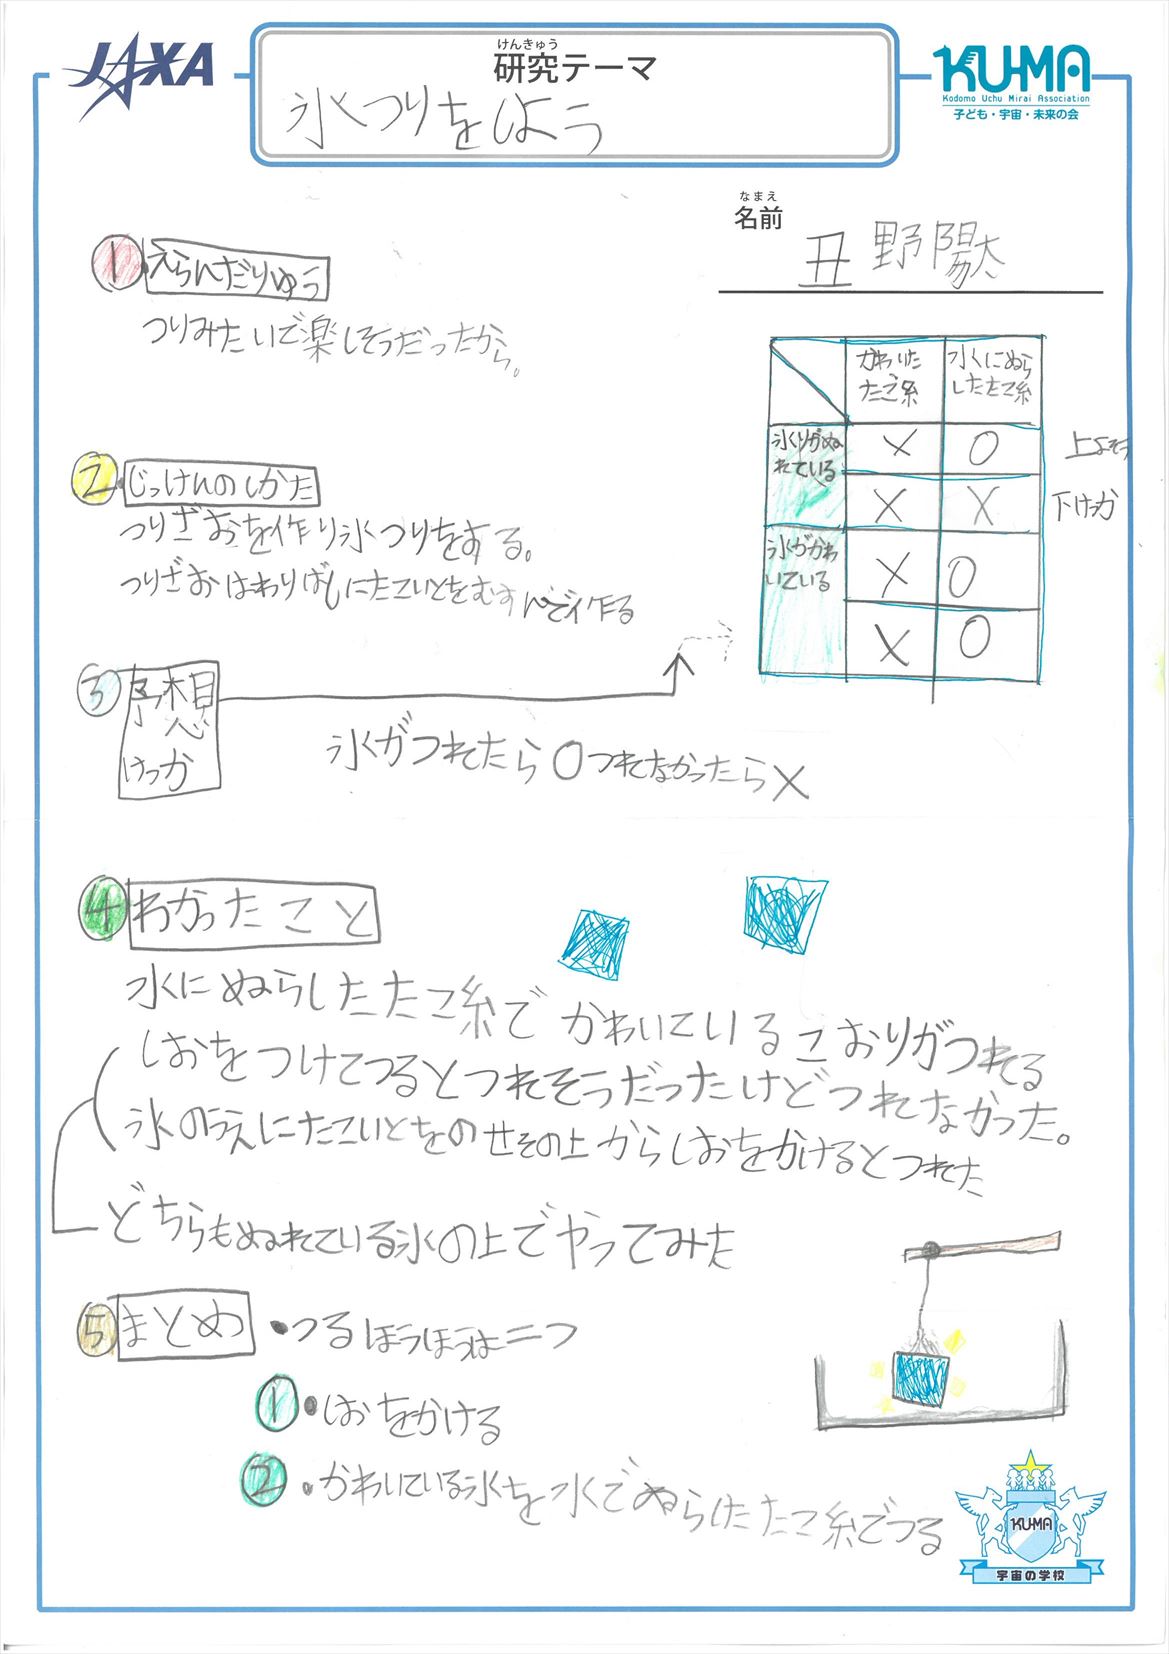 JAXA
けんきゅう
研究テーマ
氷つりをしよう
KU-MA
Kodomo Uchu Mirai Association
子ども・宇宙・未来の会
なまえ
名前
丑野陽太
1 えらんだりゆう
つりみたいで楽しそうだったから。
かわいた
たこ糸
水にぬら
したたこ糸
氷りがぬ
れている
× ○
上よそう
× ×
下けっか
氷がかわ
いている
× ○
× ○
2 じっけんのしかた
つりざおを作り氷つりをする。
つりざおはわりばしにたこいとをむすんで作る
3 予想
けっか
氷がつれたら○つれなかったら×
4 わかったこと
水にぬらしたたこ糸でかわいているこおりがつれる
しおをつけてつるとつれそうだったけどつれなかった。
氷のうえにたこいとをのせその上からしおをかけるとつれた
どちらもぬれている氷の上でやってみた
5 まとめ ・つるほうほうは二つ
1・しおをかける
2・かわいている氷を水でぬらしたたこ糸でつる
KU-MA
宇宙の学校